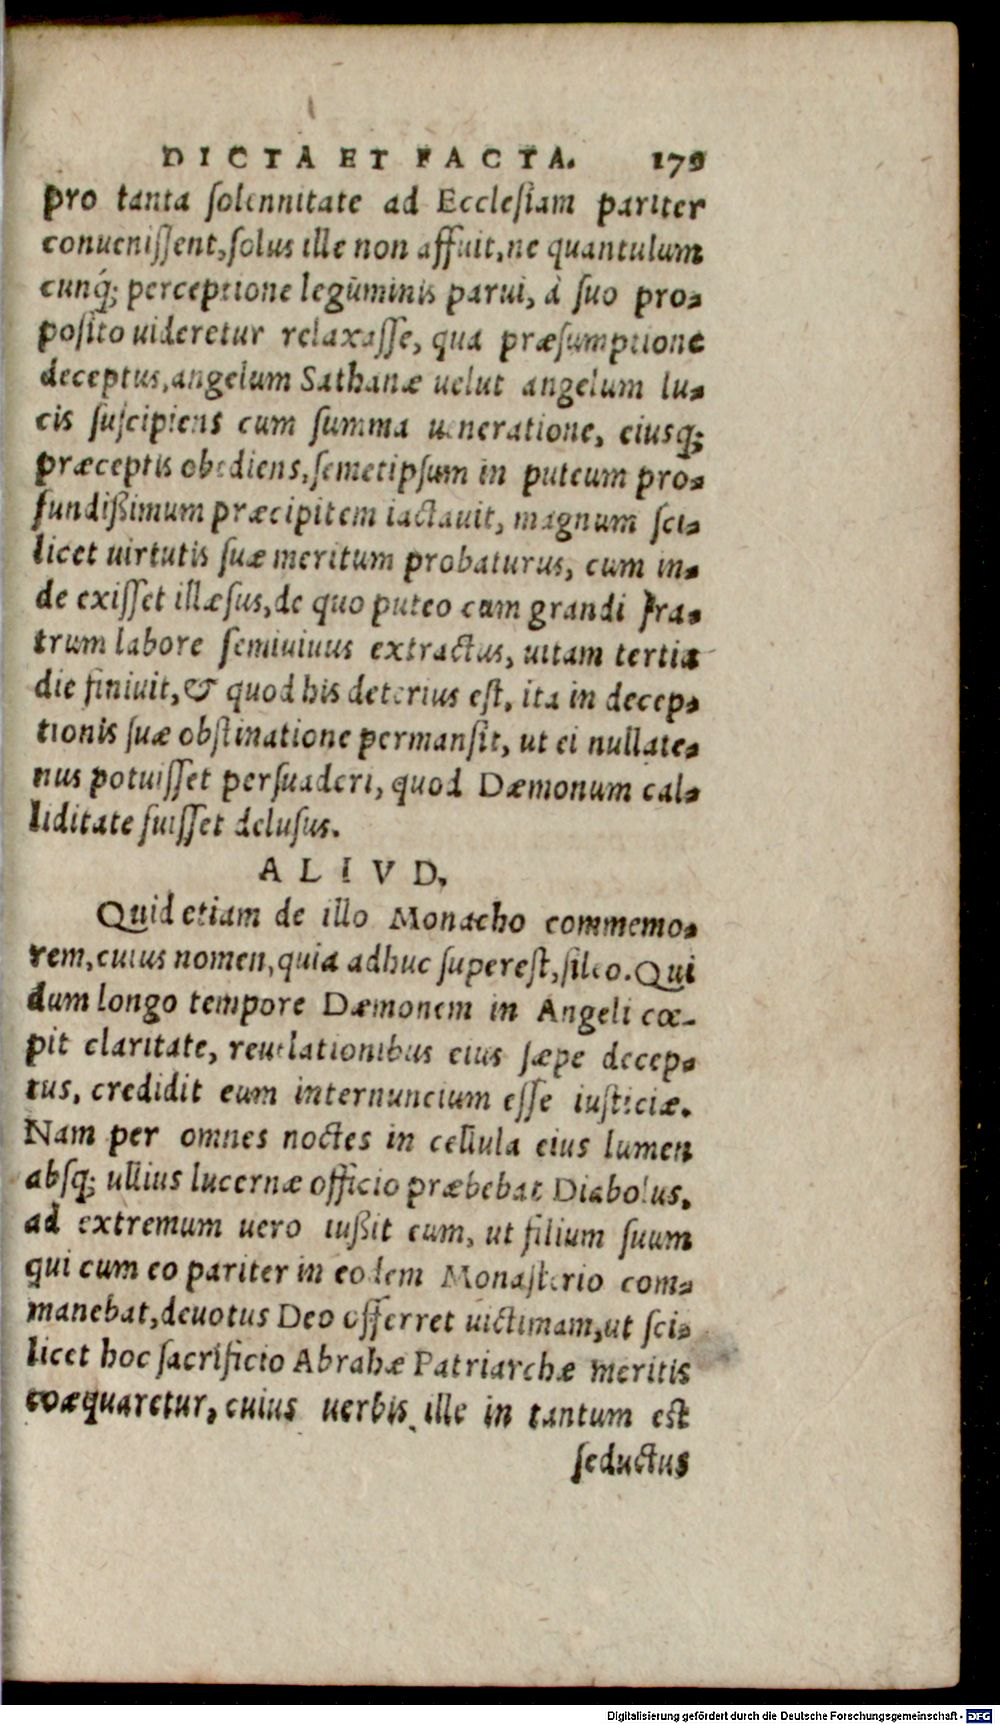 DICTA ET FACTA. 179
pro tanta ſolennitate ad Eccleſiam pariter
conueniſſent, ſolus ille non affuit, ne quantulum
cunq́; perceptione legūminis parui, à ſuo pro-
poſito uideretur relaxaſſe, qua præſumptione
deceptus, angelum Sathanæ uelut angelum lu-
cis ſuſcipiens cum ſumma ueneratione, eiusq;
præceptis obediens, ſemetipſum in puteum pro-
fundißimum præcipitem iactauit, magnum ſci-
licet uirtutis ſuæ meritum probaturus, cum in-
de exiſſet illæſus, de quo puteo cum grandi fra-
trum labore ſemiuiuus extractus, uitam tertia
die finiuit, & quod his deterius eſt, ita in decep-
tionis ſuæ obſtinatione permanſit, ut ei nullate-
nus potuiſſet perſuaderi, quod Dæmonum cal-
liditate fuiſſet deluſus.
ALIVD,
Quid etiam de illo Monacho commemo-
rem, cuius nomen, quia adhuc ſupereſt, ſileo. Qui
dum longo tempore Dæmonem in Angeli cœ-
pit claritate, reuelationibus eius ſæpe decep-
tus, credidit eum internuncium eſſe iuſticiæ.
Nam per omnes noctes in cellula eius lumen
abſq; ullius lucernæ officio præbebat Diabolus,
ad extremum uero iußit eum, ut filium ſuum
qui cum eo pariter in eodem Monaſterio com-
manebat, deuotus Deo offerret uictimam, ut ſci-
licet hoc ſacrificio Abrahæ Patriarchæ meritis
coæquaretur, cuius uerbis ille in tantum eſt
ſeductus
Digitalisierung gefördert durch die Deutsche Forschungsgemeinschaft - DFG